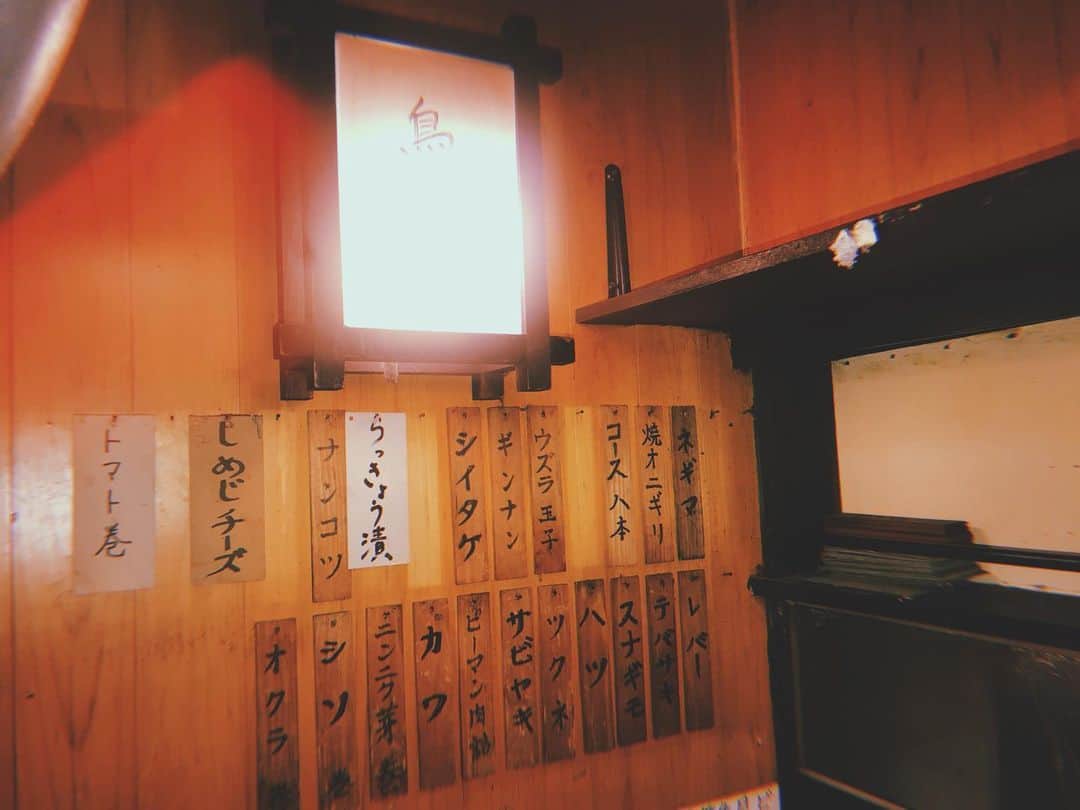 鳥
ネギマ
焼オニギリ
コース八本
ウズラ玉子
ギンナン
シイタケ
らっきょう漬
ナンコツ
しめじチーズ
トマト巻
レバー
テバサキ
スナギモ
ハツ
ツクネ
サビヤキ
ピーマン肉詰
カワ
ニンニク芽巻
シソ巻
オクラ